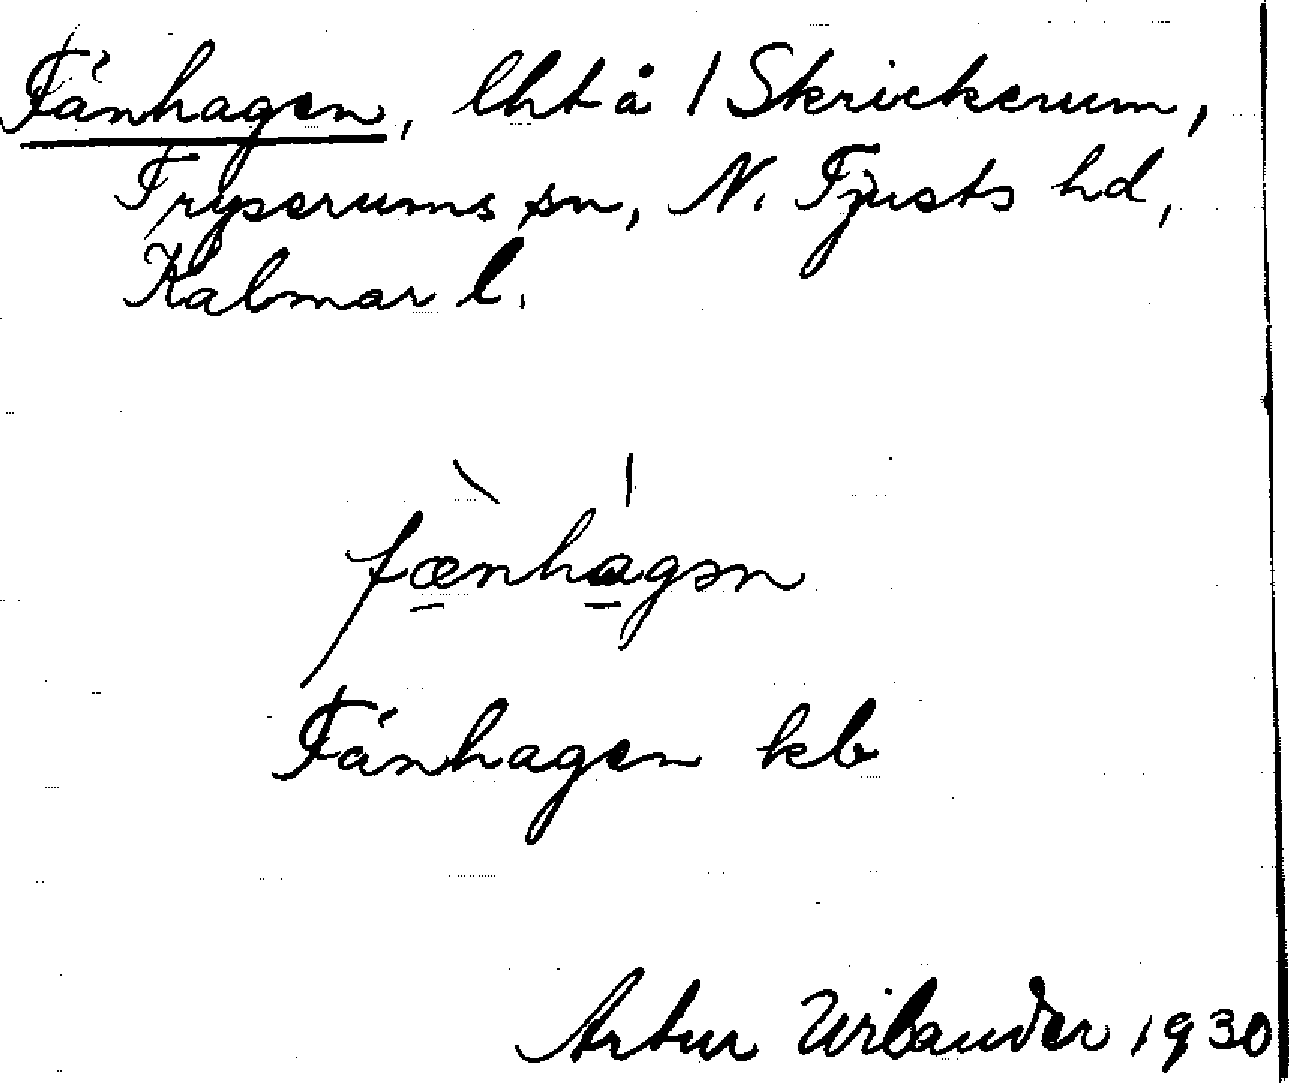 Fånhagen, lht å 1 Skrickerum,
Tryserums sn, N. Tjusts hd,
Kalmar l.
fænhagən
Fånhagen kb
Artur Wilander 1930